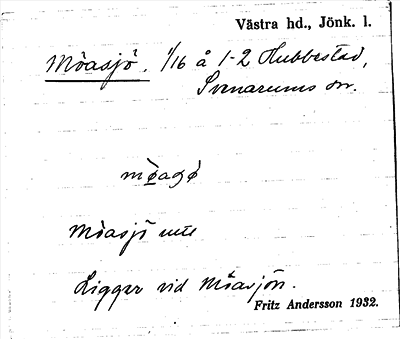 Västra hd., Jönk. l.
Möasjö. 1/16 å 1-2 Hubbestad,
Svenarums sn.
Möasjö
Ligger vid Möasjön.
Fritz Andersson 1932.